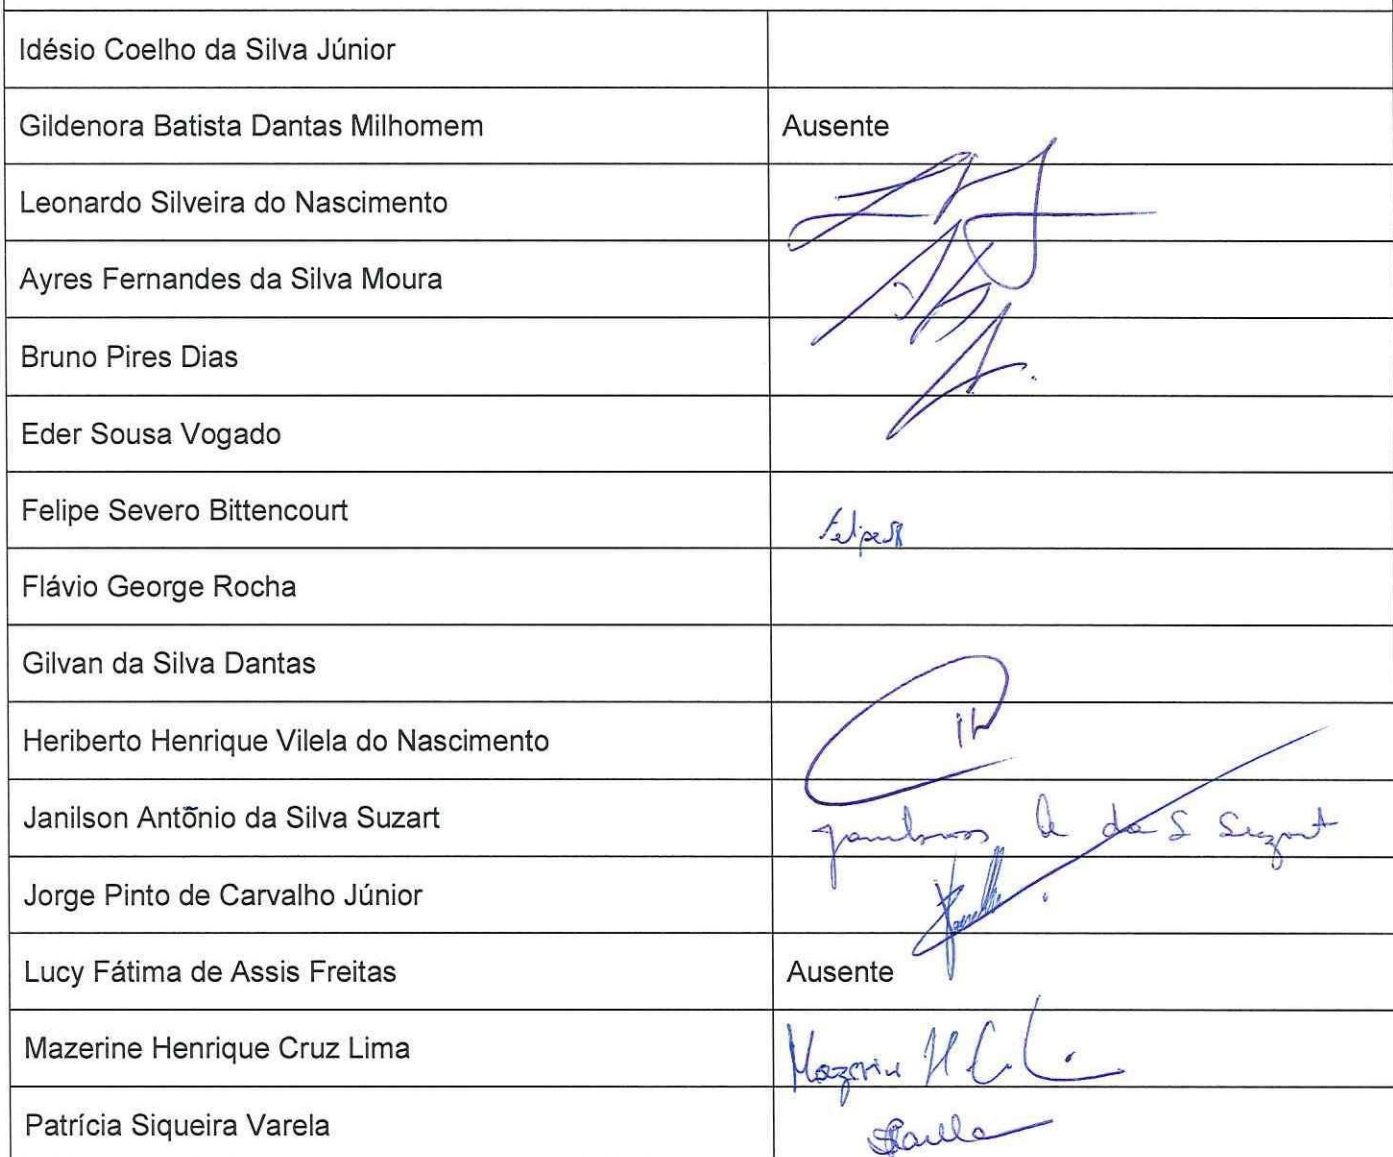 Idésio Coelho da Silva Júnior
Gildenora Batista Dantas Milhomem Ausente
Leonardo Silveira do Nascimento
Ayres Fernandes da Silva Moura
Bruno Pires Dias
Eder Sousa Vogado
Felipe Severo Bittencourt Felipe
Flávio George Rocha
Gilvan da Silva Dantas
Heriberto Henrique Vilela do Nascimento
Janilson Antõnio da Silva Suzart da S Suzart
Jorge Pinto de Carvalho Júnior
Lucy Fátima de Assis Freitas Ausente
Mazerine Henrique Cruz Lima Mazerine H
Patrícia Siqueira Varela